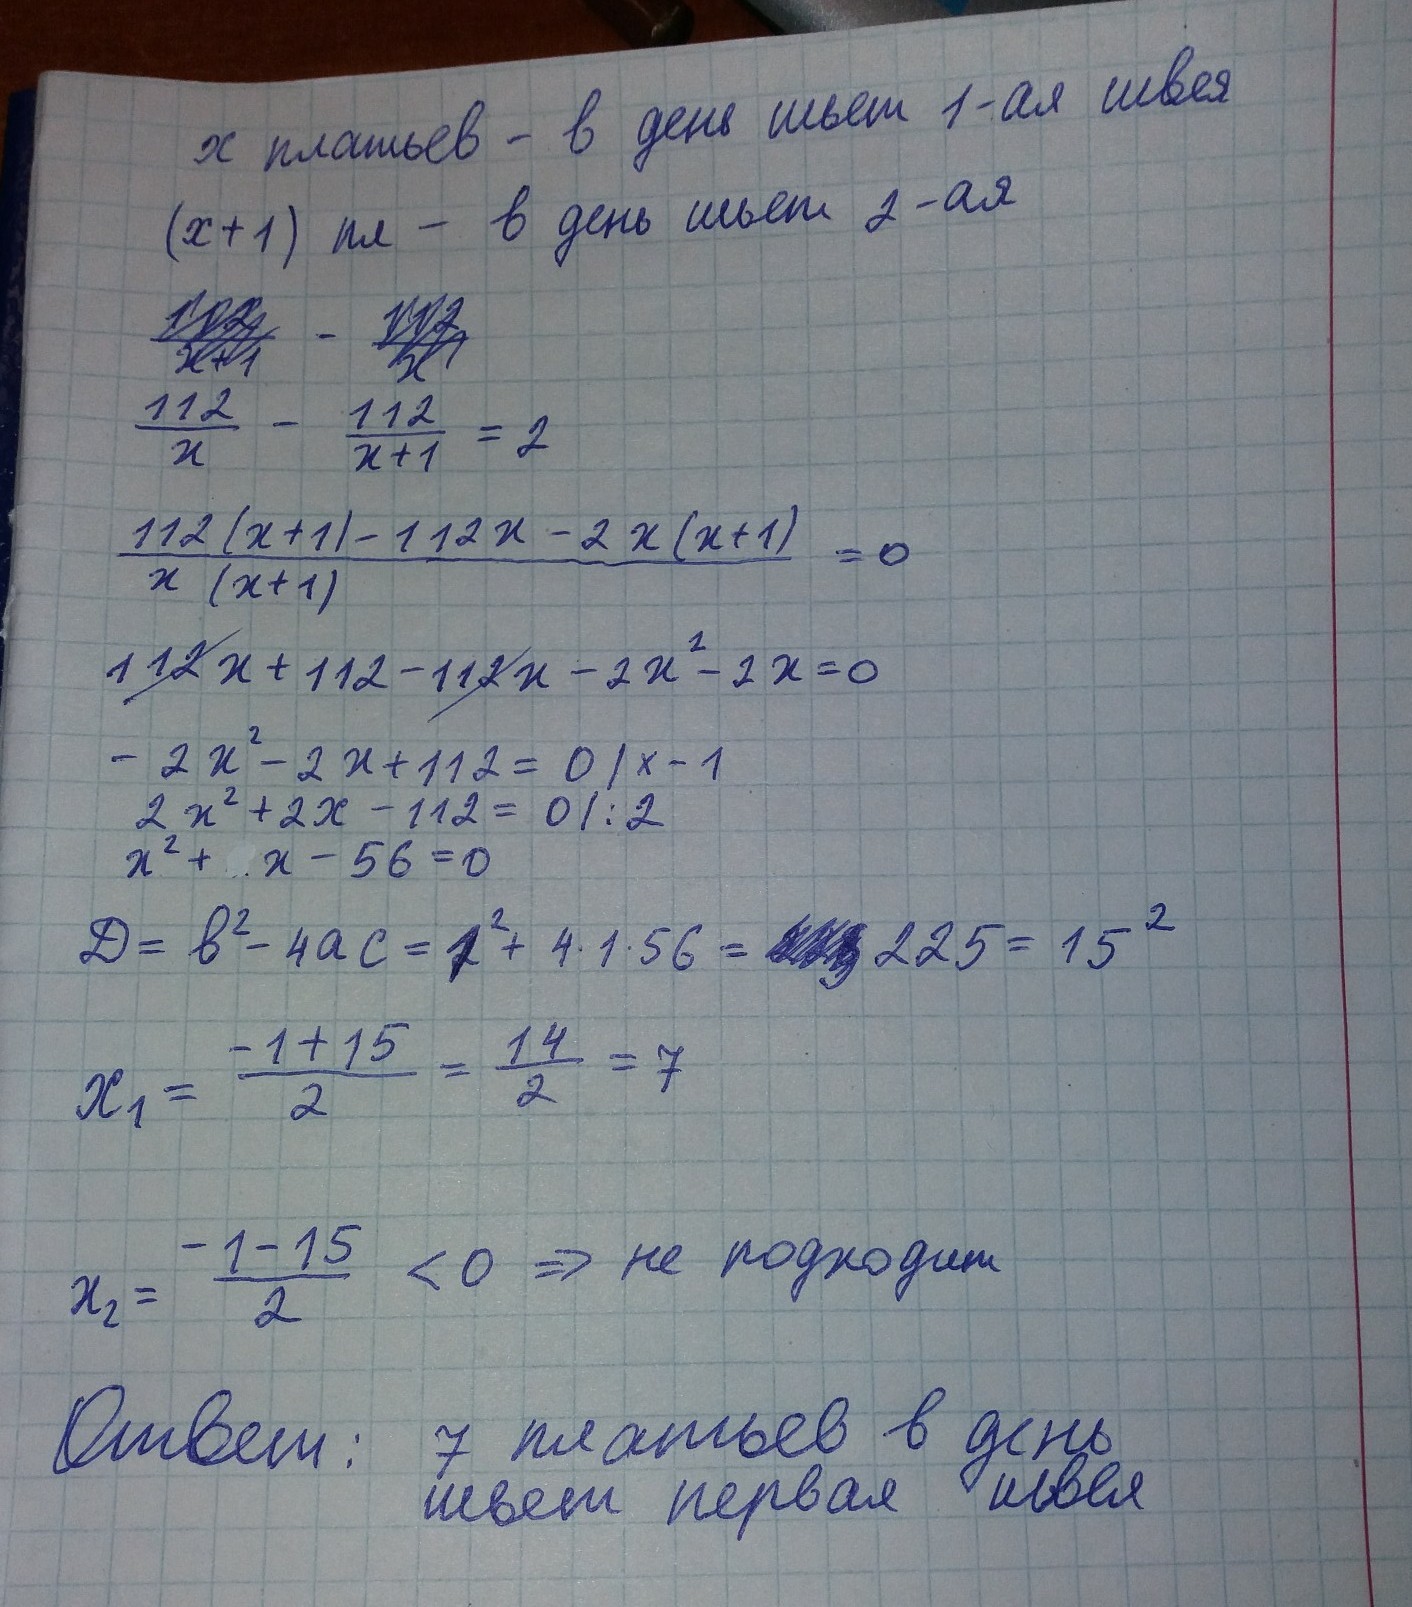 x платьев - в день шьет 1-ая швея
(x+1) пл - в день шьет 2-ая
112/x - 112/(x+1) = 2
(112(x+1)-112x-2x(x+1))/(x(x+1)) = 0
112x+112-112x-2x²-2x=0
-2x²-2x+112=0 |x-1
2x²+2x-112=0 |:2
x²+ x-56=0
D=b²-4ac=1²+4·1·56= 225=15²
x₁= (-1+15)/2 = 14/2 =7
x₂= (-1-15)/2 <0 => не подходит
Ответ: 7 платьев в день
шьет первая швея